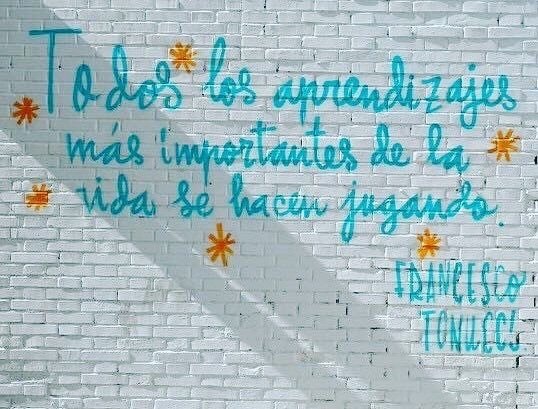 Todos los aprendizajes
más importantes de la
vida se hacen jugando.
FRANCESCO
TONUCCI